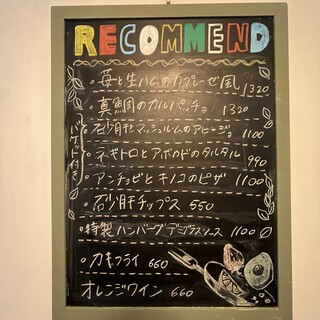 RECOMMEND
・苺と生ハムのカプレーゼ風 1320
・真鯛のカルパッチョ 1320
・砂肝とマッシュルムのアヒージョ 1100
バケット付き
・ネギトロとアボカドのタルタル 990
・アンチョビとキノコのピザ 1100
・砂肝チップス 550
・特製ハンバーグデミグラスソース 1100
・カキフライ 660
オレンジワイン 660